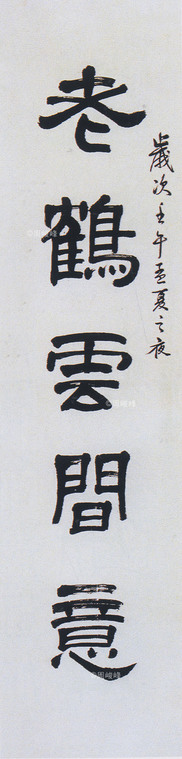 歲次壬午孟夏之夜
老鶴雲間意